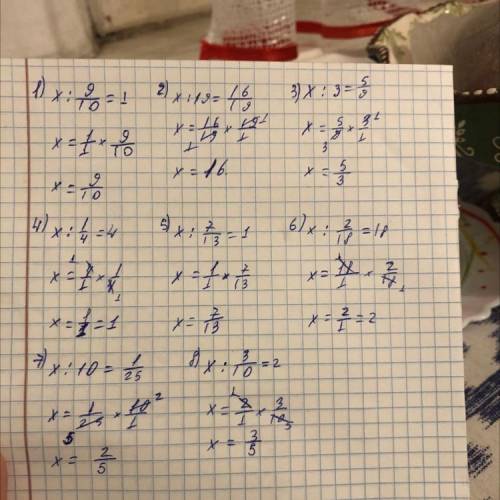 1) x : 9/10 = 1
x = 1/1 × 9/10
x = 9/10
2) x : 19 = 16/19
x = 16/19 × 19/1
x = 16
3) x : 3 = 5/9
x = 5/9 × 3/1
x = 5/3
4) x : 1/4 = 4
x = 4/1 × 1/4
x = 1/1 = 1
5) x : 7/13 = 1
x = 1/1 × 7/13
x = 7/13
6) x : 2/18 = 18
x = 18/1 × 2/18
x = 2/1 = 2
7) x : 10 = 1/25
x = 1/25 × 10/1
x = 2/5
8) x : 3/10 = 2
x = 2/1 × 3/10
x = 3/5